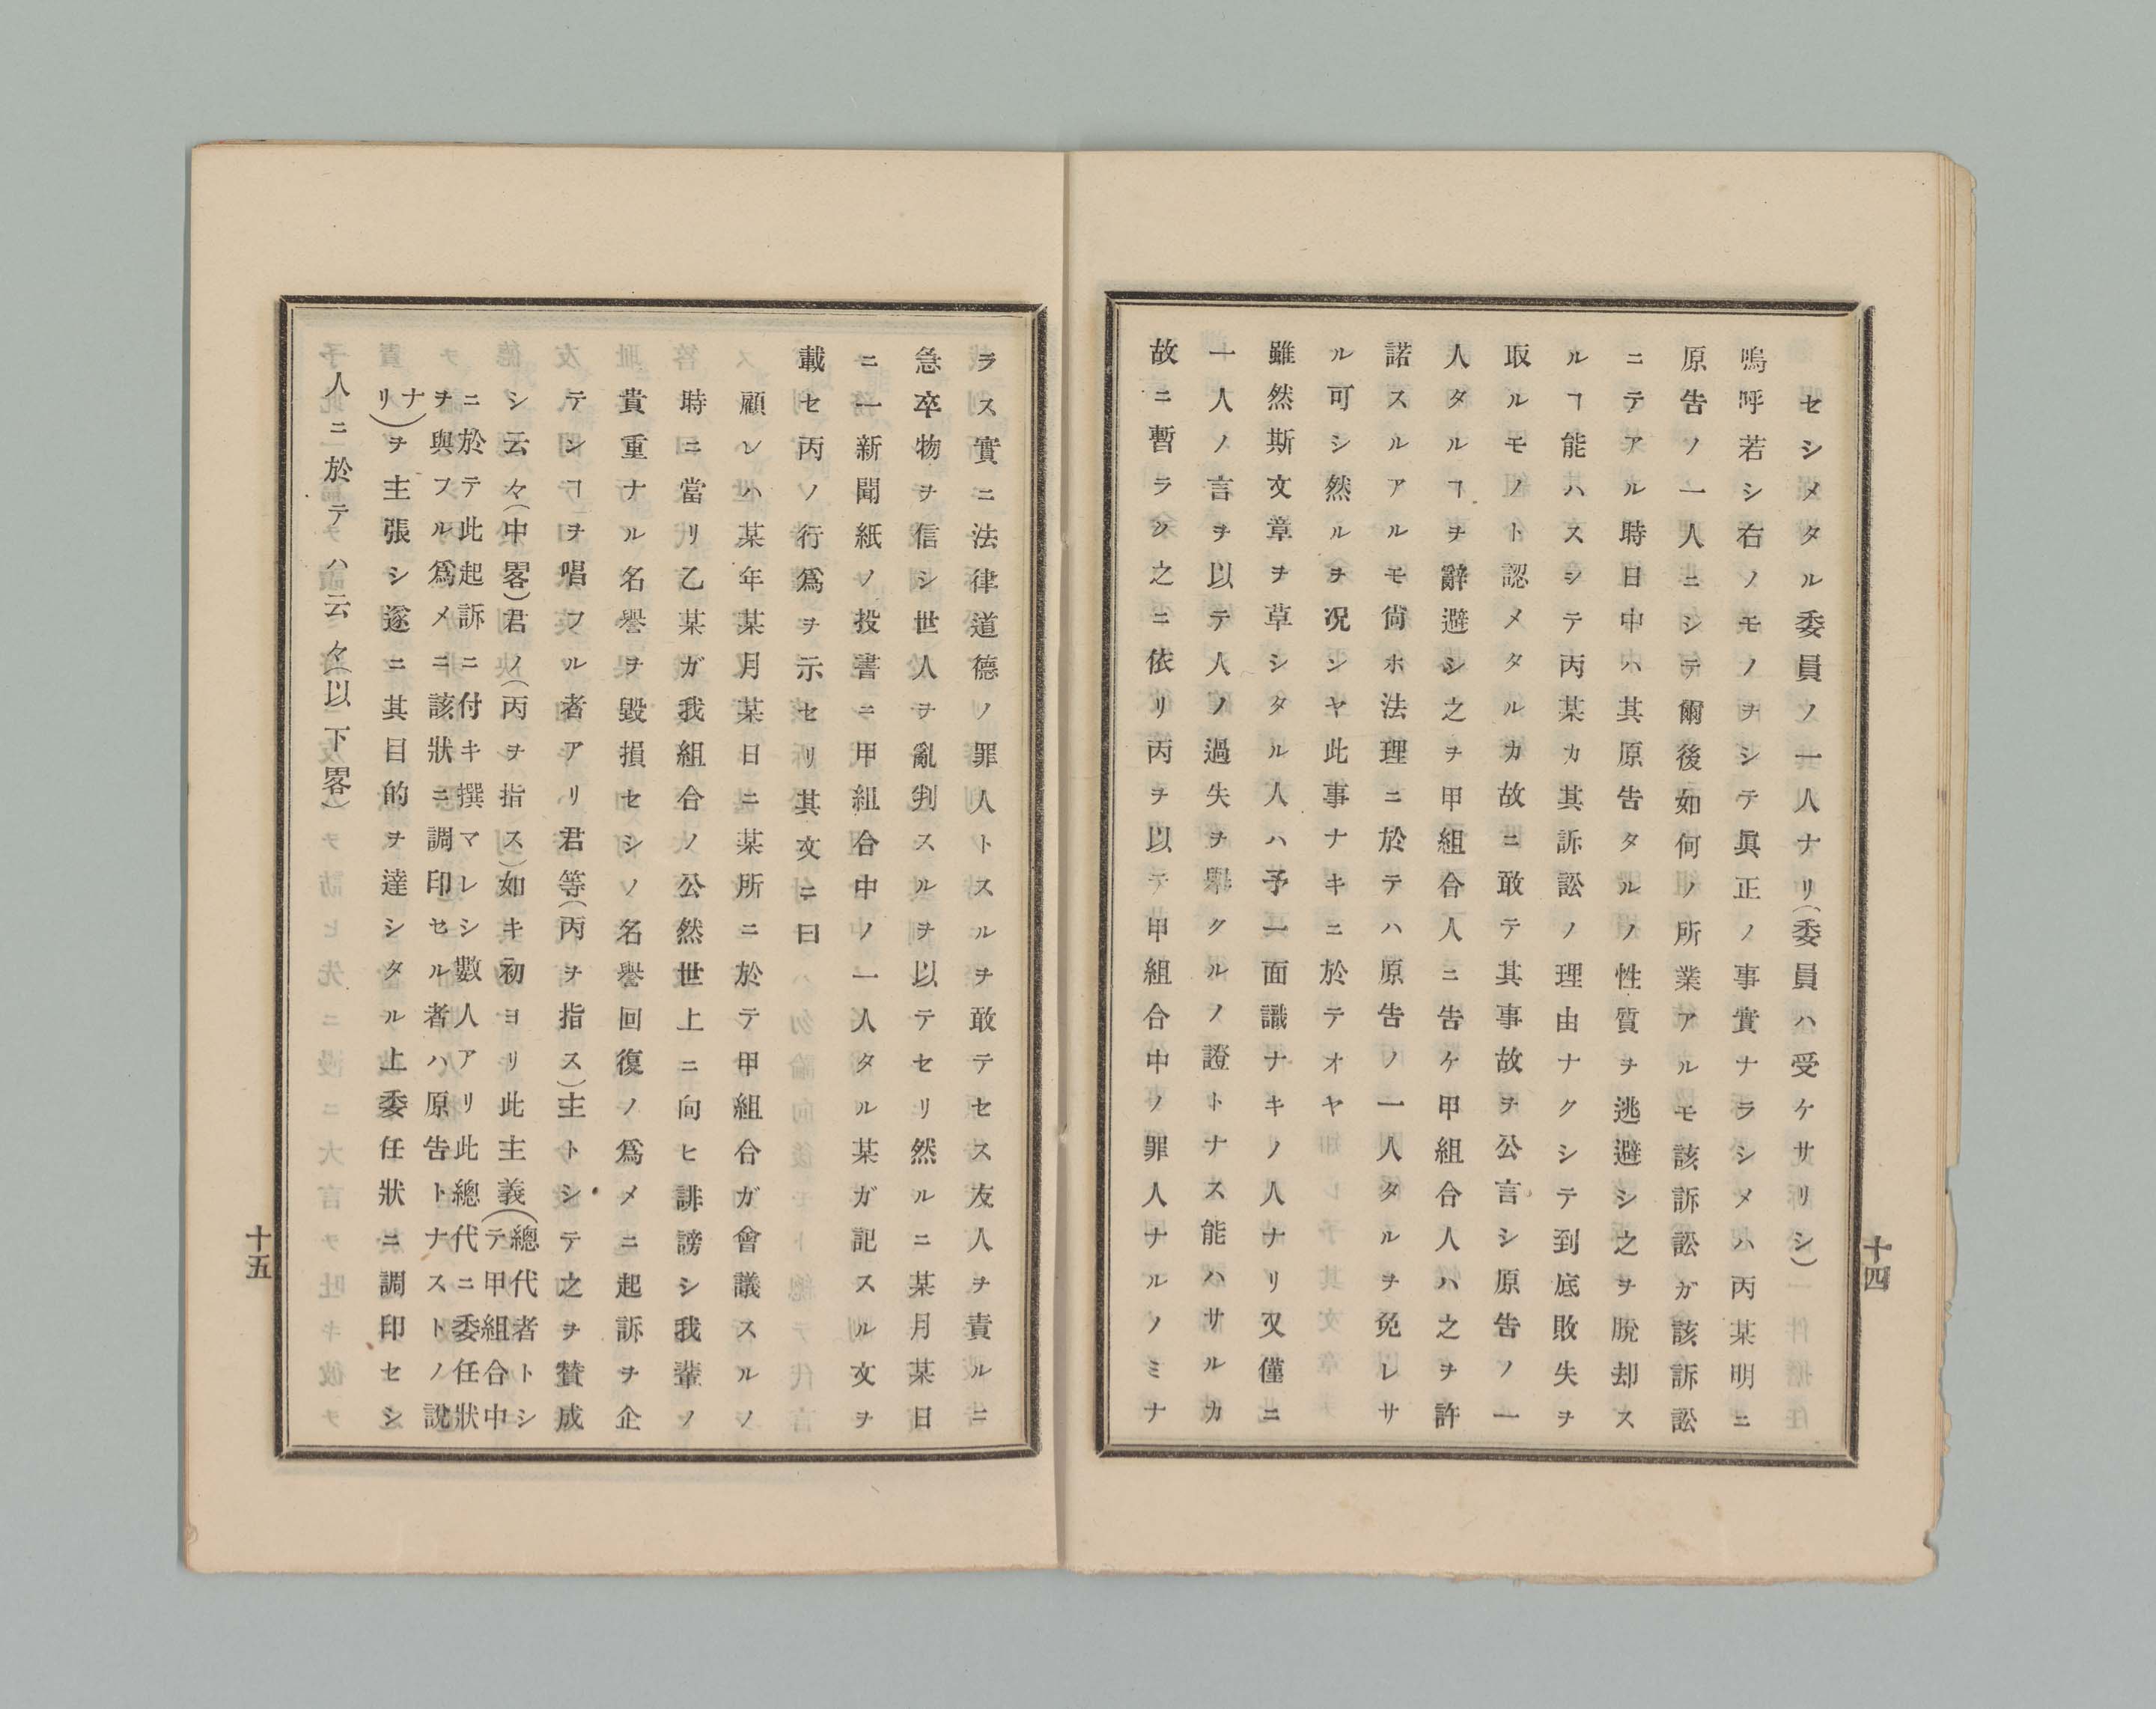 セシメタル委員ノ一人ナリ（委員ハ受ケサリシ）
嗚呼若シ右ノモノヲシテ眞正ノ事實ナラシメハ丙某明ニ
原告ノ一人ニシテ爾後如何ノ所業アルモ該訴訟ガ該訴訟
ニテアル時日中ハ其原告タルノ性質ヲ逃避シ之ヲ脫却ス
ルヿ能ハスシテ丙某カ其訴訟ノ理由ナクシテ到底敗失ヲ
取ルモノト認メタルカ故ニ敢テ其事故ヲ公言シ原告ノ一
人タルヿヲ辭避シ之ヲ甲組合人ニ告ケ甲組合人ハ之ヲ許
諾スルアルモ尙ホ法理ニ於テハ原告ノ一人タルヲ免レサ
ル可シ然ルヲ况ンヤ此事ナキニ於テオヤ
雖然斯文章ヲ草シタル人ハ予一面識ナキノ人ナリ又僅ニ
一人ノ言ヲ以テ人ノ過失ヲ擧クルノ證トナス能ハサルカ
故ニ暫ラク之ニ依リ丙ヲ以テ甲組合中ノ罪人ナルノミナ
十四
ラス實ニ法律道德ノ罪人トスルヲ敢テセス友人ヲ責ルニ
急卒物ヲ信シ世人ヲ亂判スルヲ以テセリ然ルニ某月某日
ニ一新聞紙ノ投書ニ甲組合中ノ一人タル某ガ記スル文ヲ
載セ丙ノ行爲ヲ示セリ其文ニ曰
顧レハ某年某月某日ニ某所ニ於テ甲組合ガ會議スルノ
時ニ當リ乙某ガ我組合ノ公然世上ニ向ヒ誹謗シ我輩ノ
貴重ナル名譽ヲ毀損セシノ名譽回復ノ爲メニ起訴ヲ企
テシヿヲ唱フル者アリ君等（丙ヲ指ス）主トシテ之ヲ賛成
シ云々（中畧）君ノ（丙ヲ指ス）如キ初ヨリ此主義（總代者トシ
テ甲組合中
ニ於テ此起訴ニ付キ撰マレシ數人アリ此總代ニ委任狀
ヲ與フル爲メニ該狀ニ調印セル者ハ原告トナストノ說
ナリ）ヲ主張シ遂ニ其目的ヲ達シタル上委任狀ニ調印セシ
人ニ於テハ云々（以下畧）
十五